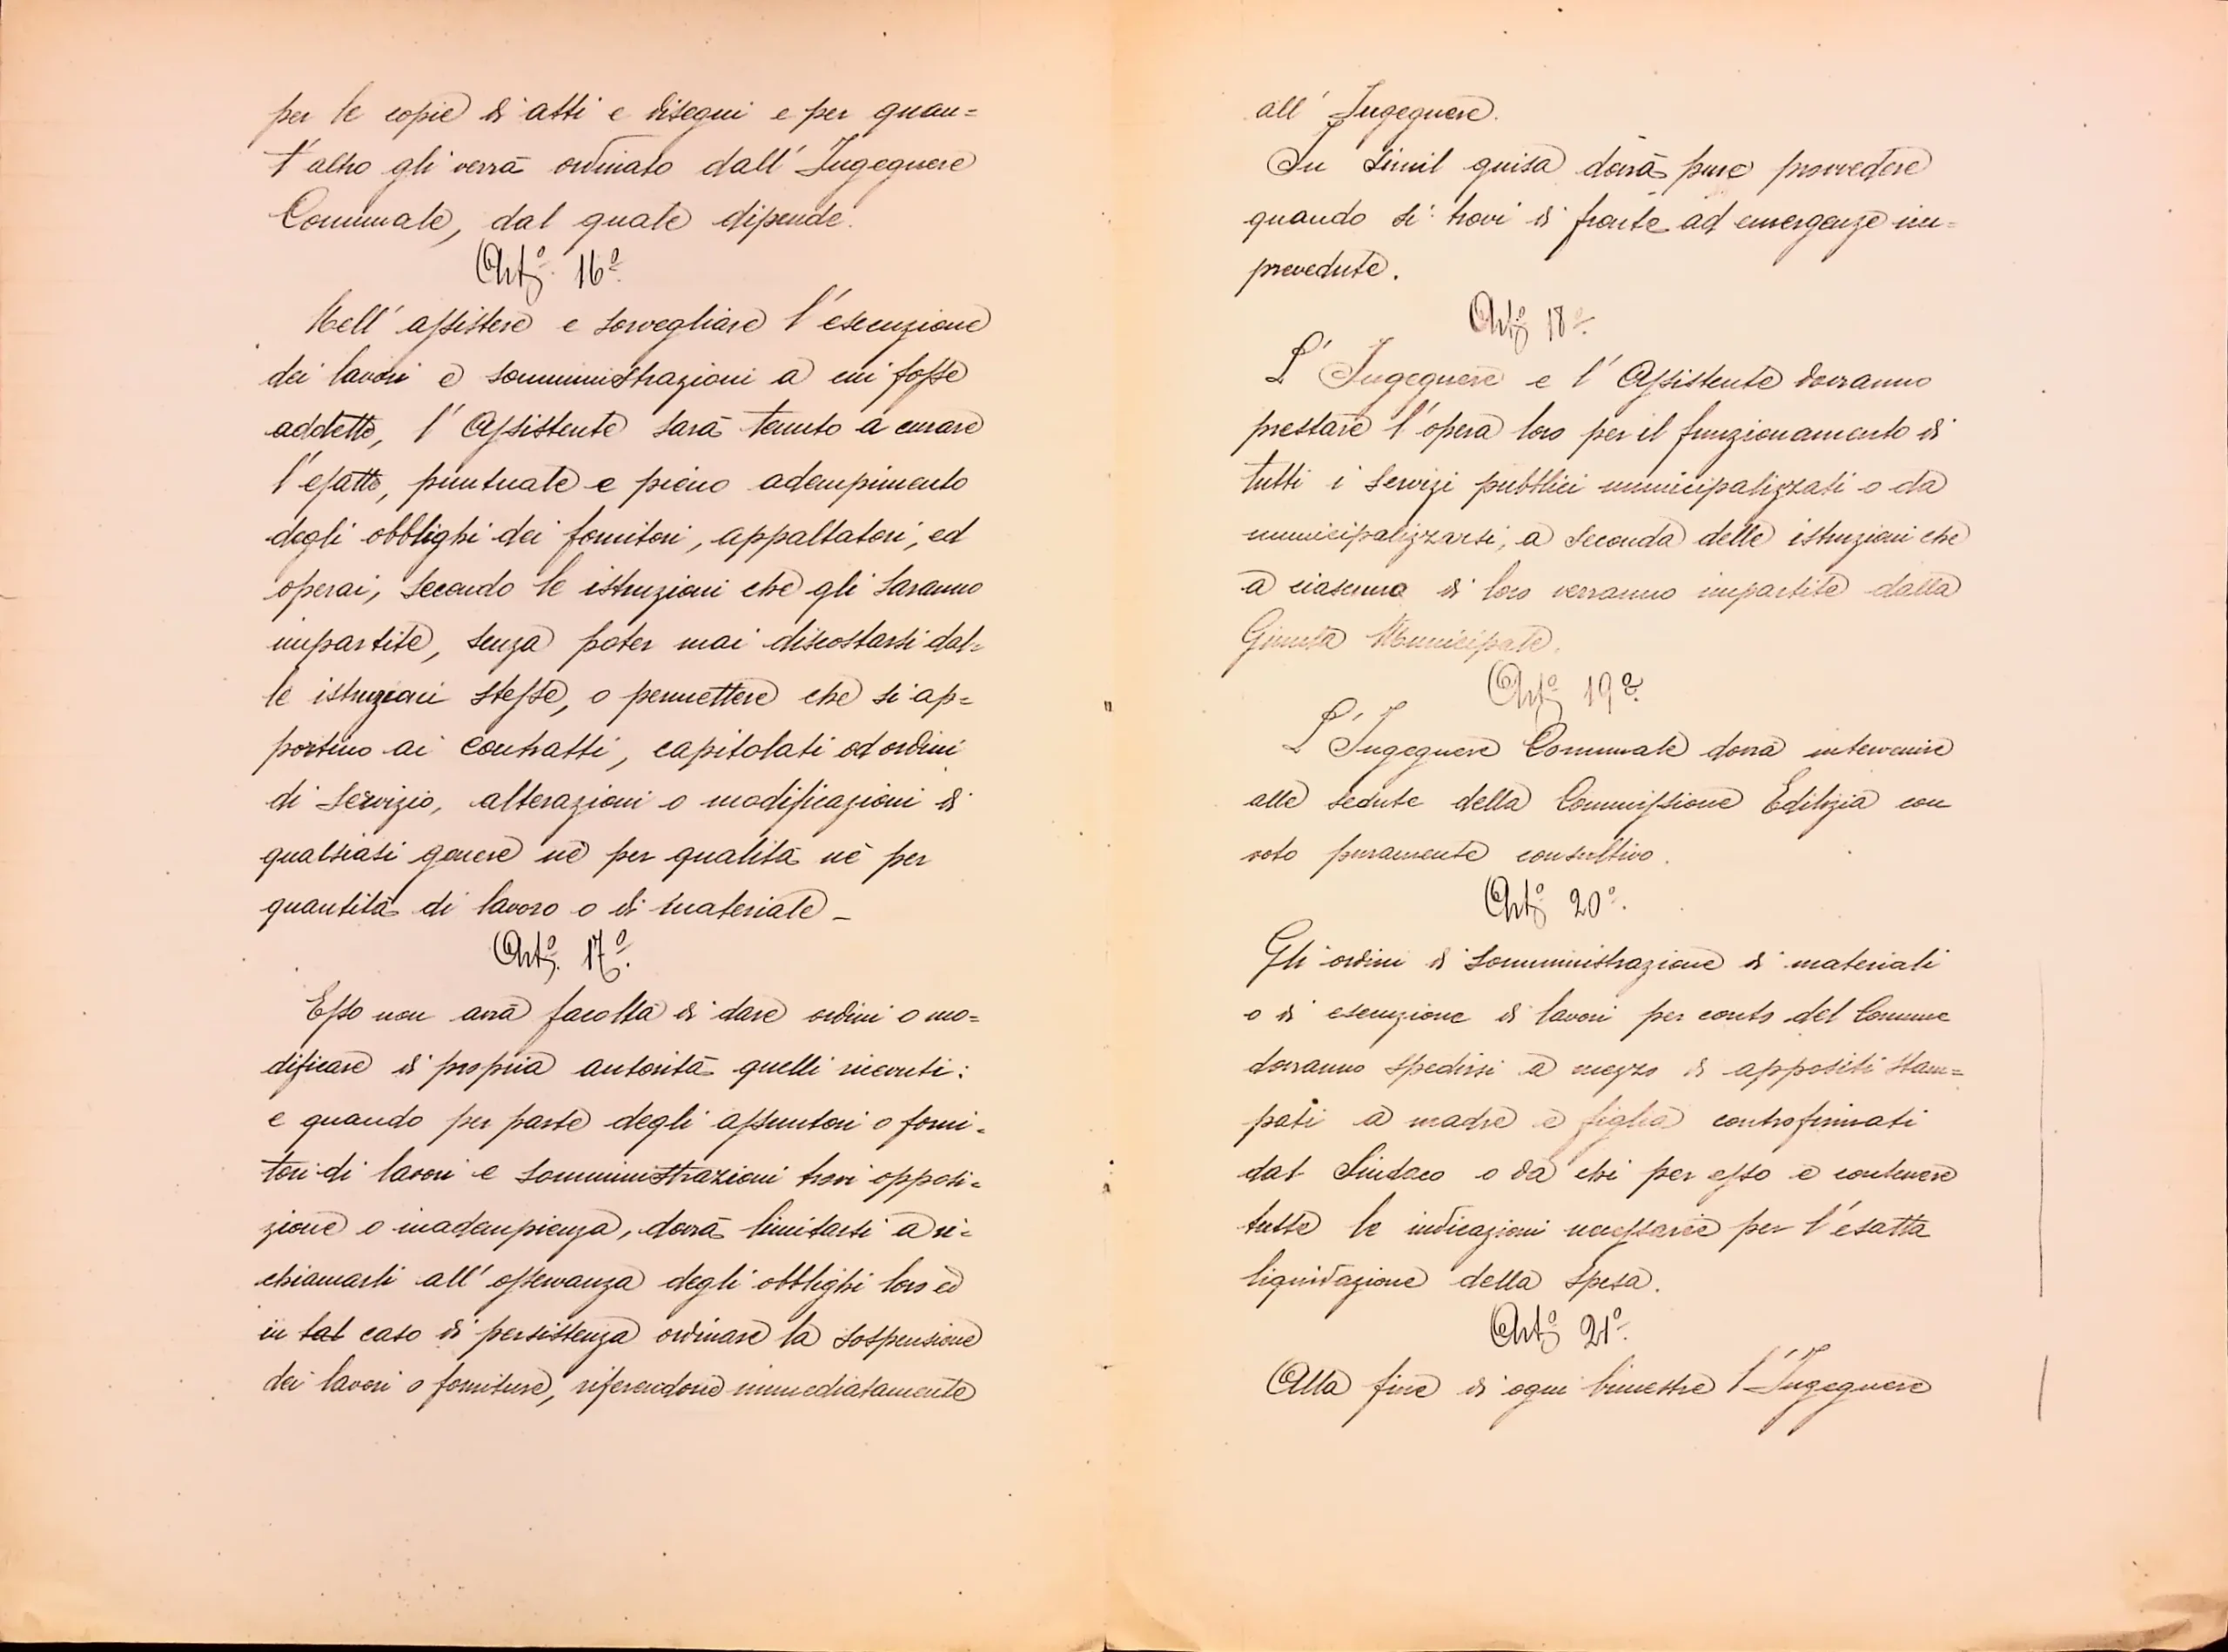 per le copie di atti e disegni e per quan=
t'altro gli verrà ordinato dall'Ingegnere
Comunale, dal quale dipende.
Art.º 16º.
Nell'assistere e sorvegliare l'esecuzione
dei lavori e somministrazioni a cui fosse
addetto, l'Assistente sarà tenuto a curare
l'esatto, puntuale e pieno adempimento
degli obblighi dei fornitori, appaltatori, ed
operai, secondo le istruzioni che gli saranno
impartite, senza poter mai discostarsi dal=
le istruzioni stesse, o permettere che si ap=
portino ai contratti, capitolati od ordini
di servizio, alterazioni o modificazioni di
qualsiasi genere nè per qualità nè per
quantità di lavoro o di materiale_
Art.º 17º.
Esso non avrà facoltà di dare ordini o mo=
dificare di propria autorità quelli ricevuti:
e quando per parte degli assuntori o forni=
tori di lavori e somministrazioni trovi opposi=
zione o inadempienza, dovrà limitarsi a ri=
chiamarli all'osservanza degli obblighi loro ed
in tal caso di persistenza ordinare la sospensione
dei lavori o forniture, riferendone immediatamente
all'Ingegnere.
In simil guisa dovrà pure provvedere
quando si trovi di fronte ad emergenze im=
prevedute.
Artº 18º.
L'Ingegnere e l'Assistente dovranno
prestare l'opera loro per il funzionamento di
tutti i servizi pubblici municipalizzati o da
municipalizzarsi, a seconda delle istruzioni che
a ciascuno di loro verranno impartite dalla
Giunta Municipale.
Artº 19º.
L'Ingegnere Comunale dovrà intervenire
alle sedute della Commissione Edilizia con
voto puramente consultivo.
Artº 20º.
Gli ordini di somministrazione di materiali
o di esecuzione di lavori per conto del Comune
dovranno spedirsi a mezzo di appositi stam=
pati a madre e figlia controfirmati
dal Sindaco o da chi per esso e contenere
tutte le indicazioni necessarie per l'esatta
liquidazione della spesa.
Artº 21º.
Alla fine di ogni bimestre l'Ingegnere